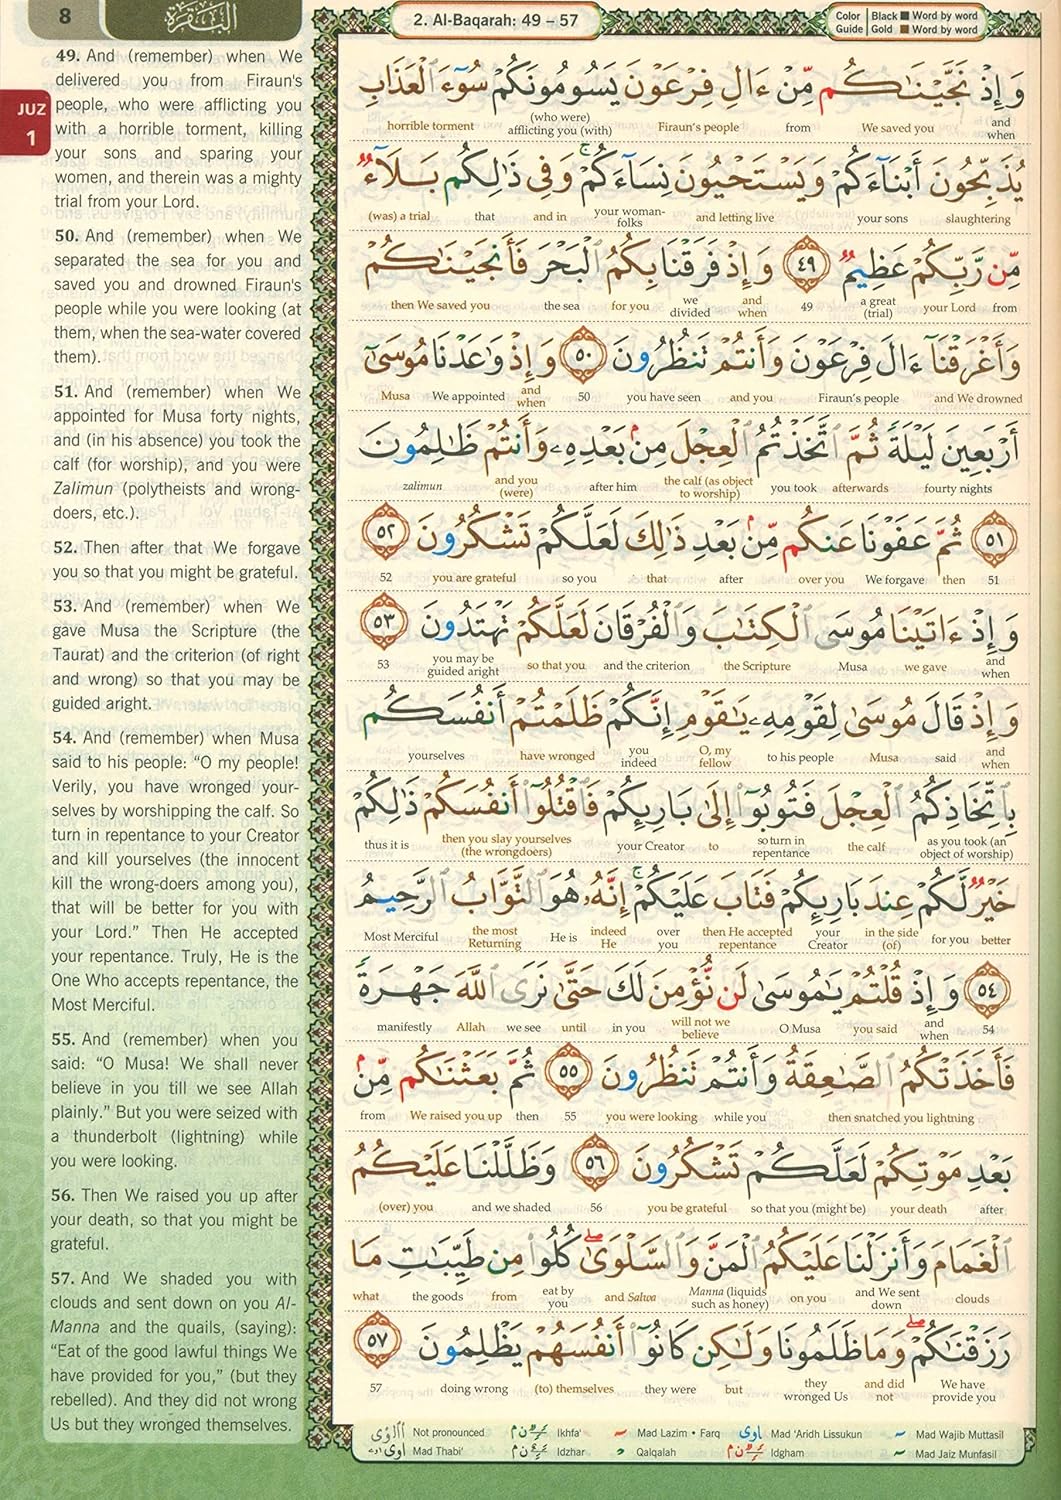 8
البقرة
2. Al-Baqarah: 49 – 57
Color Guide
Black ■ Word by word
Gold ■ Word by word
JUZ
1
49. And (remember) when We
delivered you from Firaun's
people, who were afflicting you
with a horrible torment, killing
your sons and sparing your
women, and therein was a mighty
trial from your Lord.
50. And (remember) when We
separated the sea for you and
saved you and drowned Firaun's
people while you were looking (at
them, when the sea-water covered
them).
51. And (remember) when We
appointed for Musa forty nights,
and (in his absence) you took the
calf (for worship), and you were
Zalimun (polytheists and wrong-
doers, etc.).
52. Then after that We forgave
you so that you might be grateful.
53. And (remember) when We
gave Musa the Scripture (the
Taurat) and the criterion (of right
and wrong) so that you may be
guided aright.
54. And (remember) when Musa
said to his people: “O my people!
Verily, you have wronged your-
selves by worshipping the calf. So
turn in repentance to your Creator
and kill yourselves (the innocent
kill the wrong-doers among you),
that will be better for you with
your Lord.” Then He accepted
your repentance. Truly, He is the
One Who accepts repentance, the
Most Merciful.
55. And (remember) when you
said: “O Musa! We shall never
believe in you till we see Allah
plainly.” But you were seized with
a thunderbolt (lightning) while
you were looking.
56. Then We raised you up after
your death, so that you might be
grateful.
57. And We shaded you with
clouds and sent down on you Al-
Manna and the quails, (saying):
“Eat of the good lawful things We
have provided for you,” (but they
rebelled). And they did not wrong
Us but they wronged themselves.
وَإِذْ نَجَّيْنَٰكُم مِّنْ ءَالِ فِرْعَوْنَ يَسُومُونَكُمْ سُوٓءَ ٱلْعَذَابِ
and when We saved you from Firaun's people (who were) afflicting you (with) horrible torment
يُذَبِّحُونَ أَبْنَآءَكُمْ وَيَسْتَحْيُونَ نِسَآءَكُمْ ۚ وَفِى ذَٰلِكُم بَلَآءٌ
slaughtering your sons and letting live your woman-folks and in that (was) a trial
مِّن رَّبِّكُمْ عَظِيمٌ ٤٩ وَإِذْ فَرَقْنَا بِكُمُ ٱلْبَحْرَ فَأَنجَيْنَٰكُمْ
from your Lord a great (trial) 49 and when we divided for you the sea then We saved you
وَأَغْرَقْنَآ ءَالَ فِرْعَوْنَ وَأَنتُمْ تَنظُرُونَ ٥٠ وَإِذْ وَٰعَدْنَا مُوسَىٰٓ
and We drowned Firaun's people and you you have seen 50 and when We appointed Musa
أَرْبَعِينَ لَيْلَةً ثُمَّ ٱتَّخَذْتُمُ ٱلْعِجْلَ مِنۢ بَعْدِهِۦ وَأَنتُمْ ظَٰلِمُونَ
fourty nights afterwards you took the calf (as object to worship) after him and you (were) zalimun
٥١ ثُمَّ عَفَوْنَا عَنكُم مِّنۢ بَعْدِ ذَٰلِكَ لَعَلَّكُمْ تَشْكُرُونَ ٥٢
51 then We forgave over you after that so you you are grateful 52
وَإِذْ ءَاتَيْنَا مُوسَى ٱلْكِتَٰبَ وَٱلْفُرْقَانَ لَعَلَّكُمْ تَهْتَدُونَ ٥٣
and when we gave Musa the Scripture and the criterion so that you you may be guided aright 53
وَإِذْ قَالَ مُوسَىٰ لِقَوْمِهِۦ يَٰقَوْمِ إِنَّكُمْ ظَلَمْتُمْ أَنفُسَكُم
and when said Musa to his people O, my fellow you indeed have wronged yourselves
بِٱتِّخَاذِكُمُ ٱلْعِجْلَ فَتُوبُوٓا۟ إِلَىٰ بَارِئِكُمْ فَٱقْتُلُوٓا۟ أَنفُسَكُمْ ذَٰلِكُمْ
as you took (an object of worship) the calf so turn in repentance to your Creator then you slay yourselves (the wrongdoers) thus it is
خَيْرٌ لَّكُمْ عِندَ بَارِئِكُمْ فَتَابَ عَلَيْكُمْ ۚ إِنَّهُۥ هُوَ ٱلتَّوَّابُ ٱلرَّحِيمُ
better for you in the side (of) your Creator then He accepted repentance over you indeed He He is the most Returning Most Merciful
٥٤ وَإِذْ قُلْتُمْ يَٰمُوسَىٰ لَن نُّؤْمِنَ لَكَ حَتَّىٰ نَرَى ٱللَّهَ جَهْرَةً
54 and when you said O Musa will not we believe in you until we see Allah manifestly
فَأَخَذَتْكُمُ ٱلصَّٰعِقَةُ وَأَنتُمْ تَنظُرُونَ ٥٥ ثُمَّ بَعَثْنَٰكُم مِّنۢ
then snatched you lightning while you you were looking 55 then We raised you up from
بَعْدِ مَوْتِكُمْ لَعَلَّكُمْ تَشْكُرُونَ ٥٦ وَظَلَّلْنَا عَلَيْكُمُ
after your death so that you (might be) you be grateful 56 and we shaded (over) you
ٱلْغَمَامَ وَأَنزَلْنَا عَلَيْكُمُ ٱلْمَنَّ وَٱلسَّلْوَىٰ ۖ كُلُوا۟ مِن طَيِّبَٰتِ مَا
clouds and We sent down on you Manna (liquids such as honey) and Salwa eat by you from the goods what
رَزَقْنَٰكُمْ ۖ وَمَا ظَلَمُونَا وَلَٰكِن كَانُوٓا۟ أَنفُسَهُمْ يَظْلِمُونَ ٥٧
We have provide you and did not they wronged Us but they were (to) themselves doing wrong 57
Not pronounced Ikhfa' Mad Lazim • Farq Mad 'Aridh Lissukun Mad Wajib Muttasil
Mad Thabi' Idzhar Qalqalah Idgham Mad Jaiz Munfasil